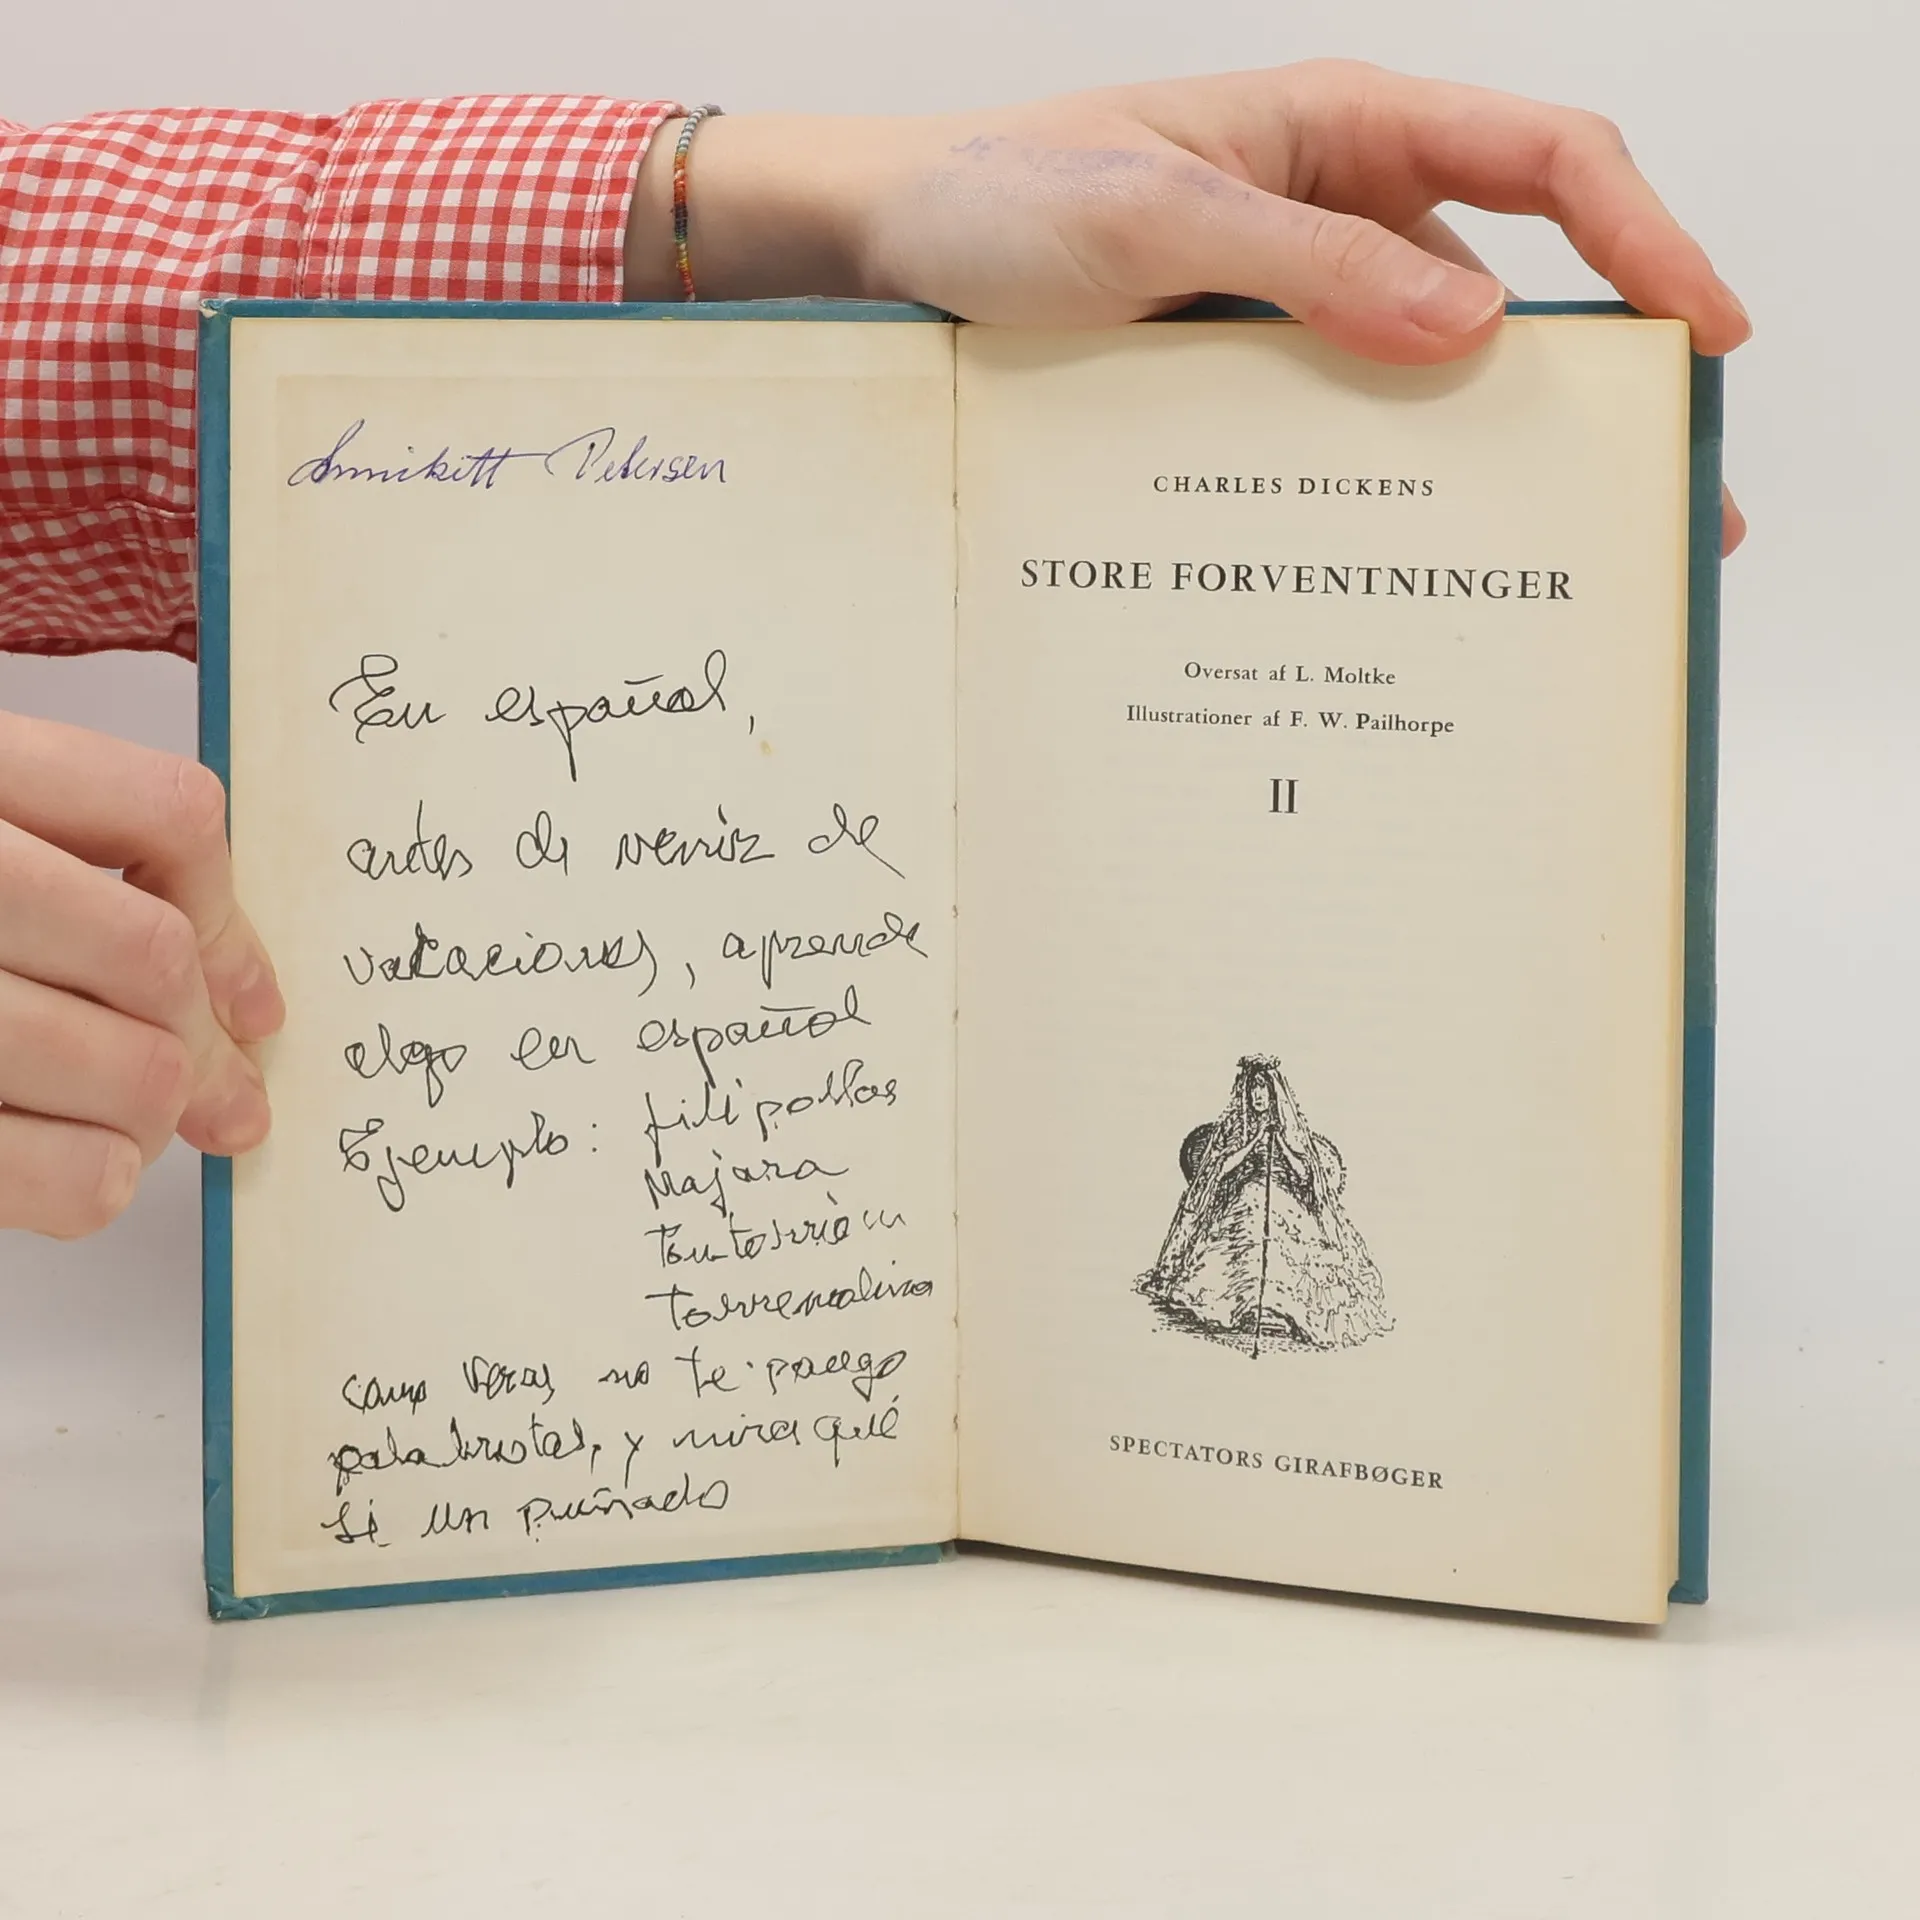 Annikitt Petersen
En español,
antes de veniz de
vacaciones, aprende
algo en español
Ejemplo: filipollas
Majara
Tontorrión
Torremolina
como veras no te pongo
palabrotas, y mira que
sé un puñado
CHARLES DICKENS
STORE FORVENTNINGER
Oversat af L. Moltke
Illustrationer af F. W. Pailhorpe
II
SPECTATORS GIRAFBØGER